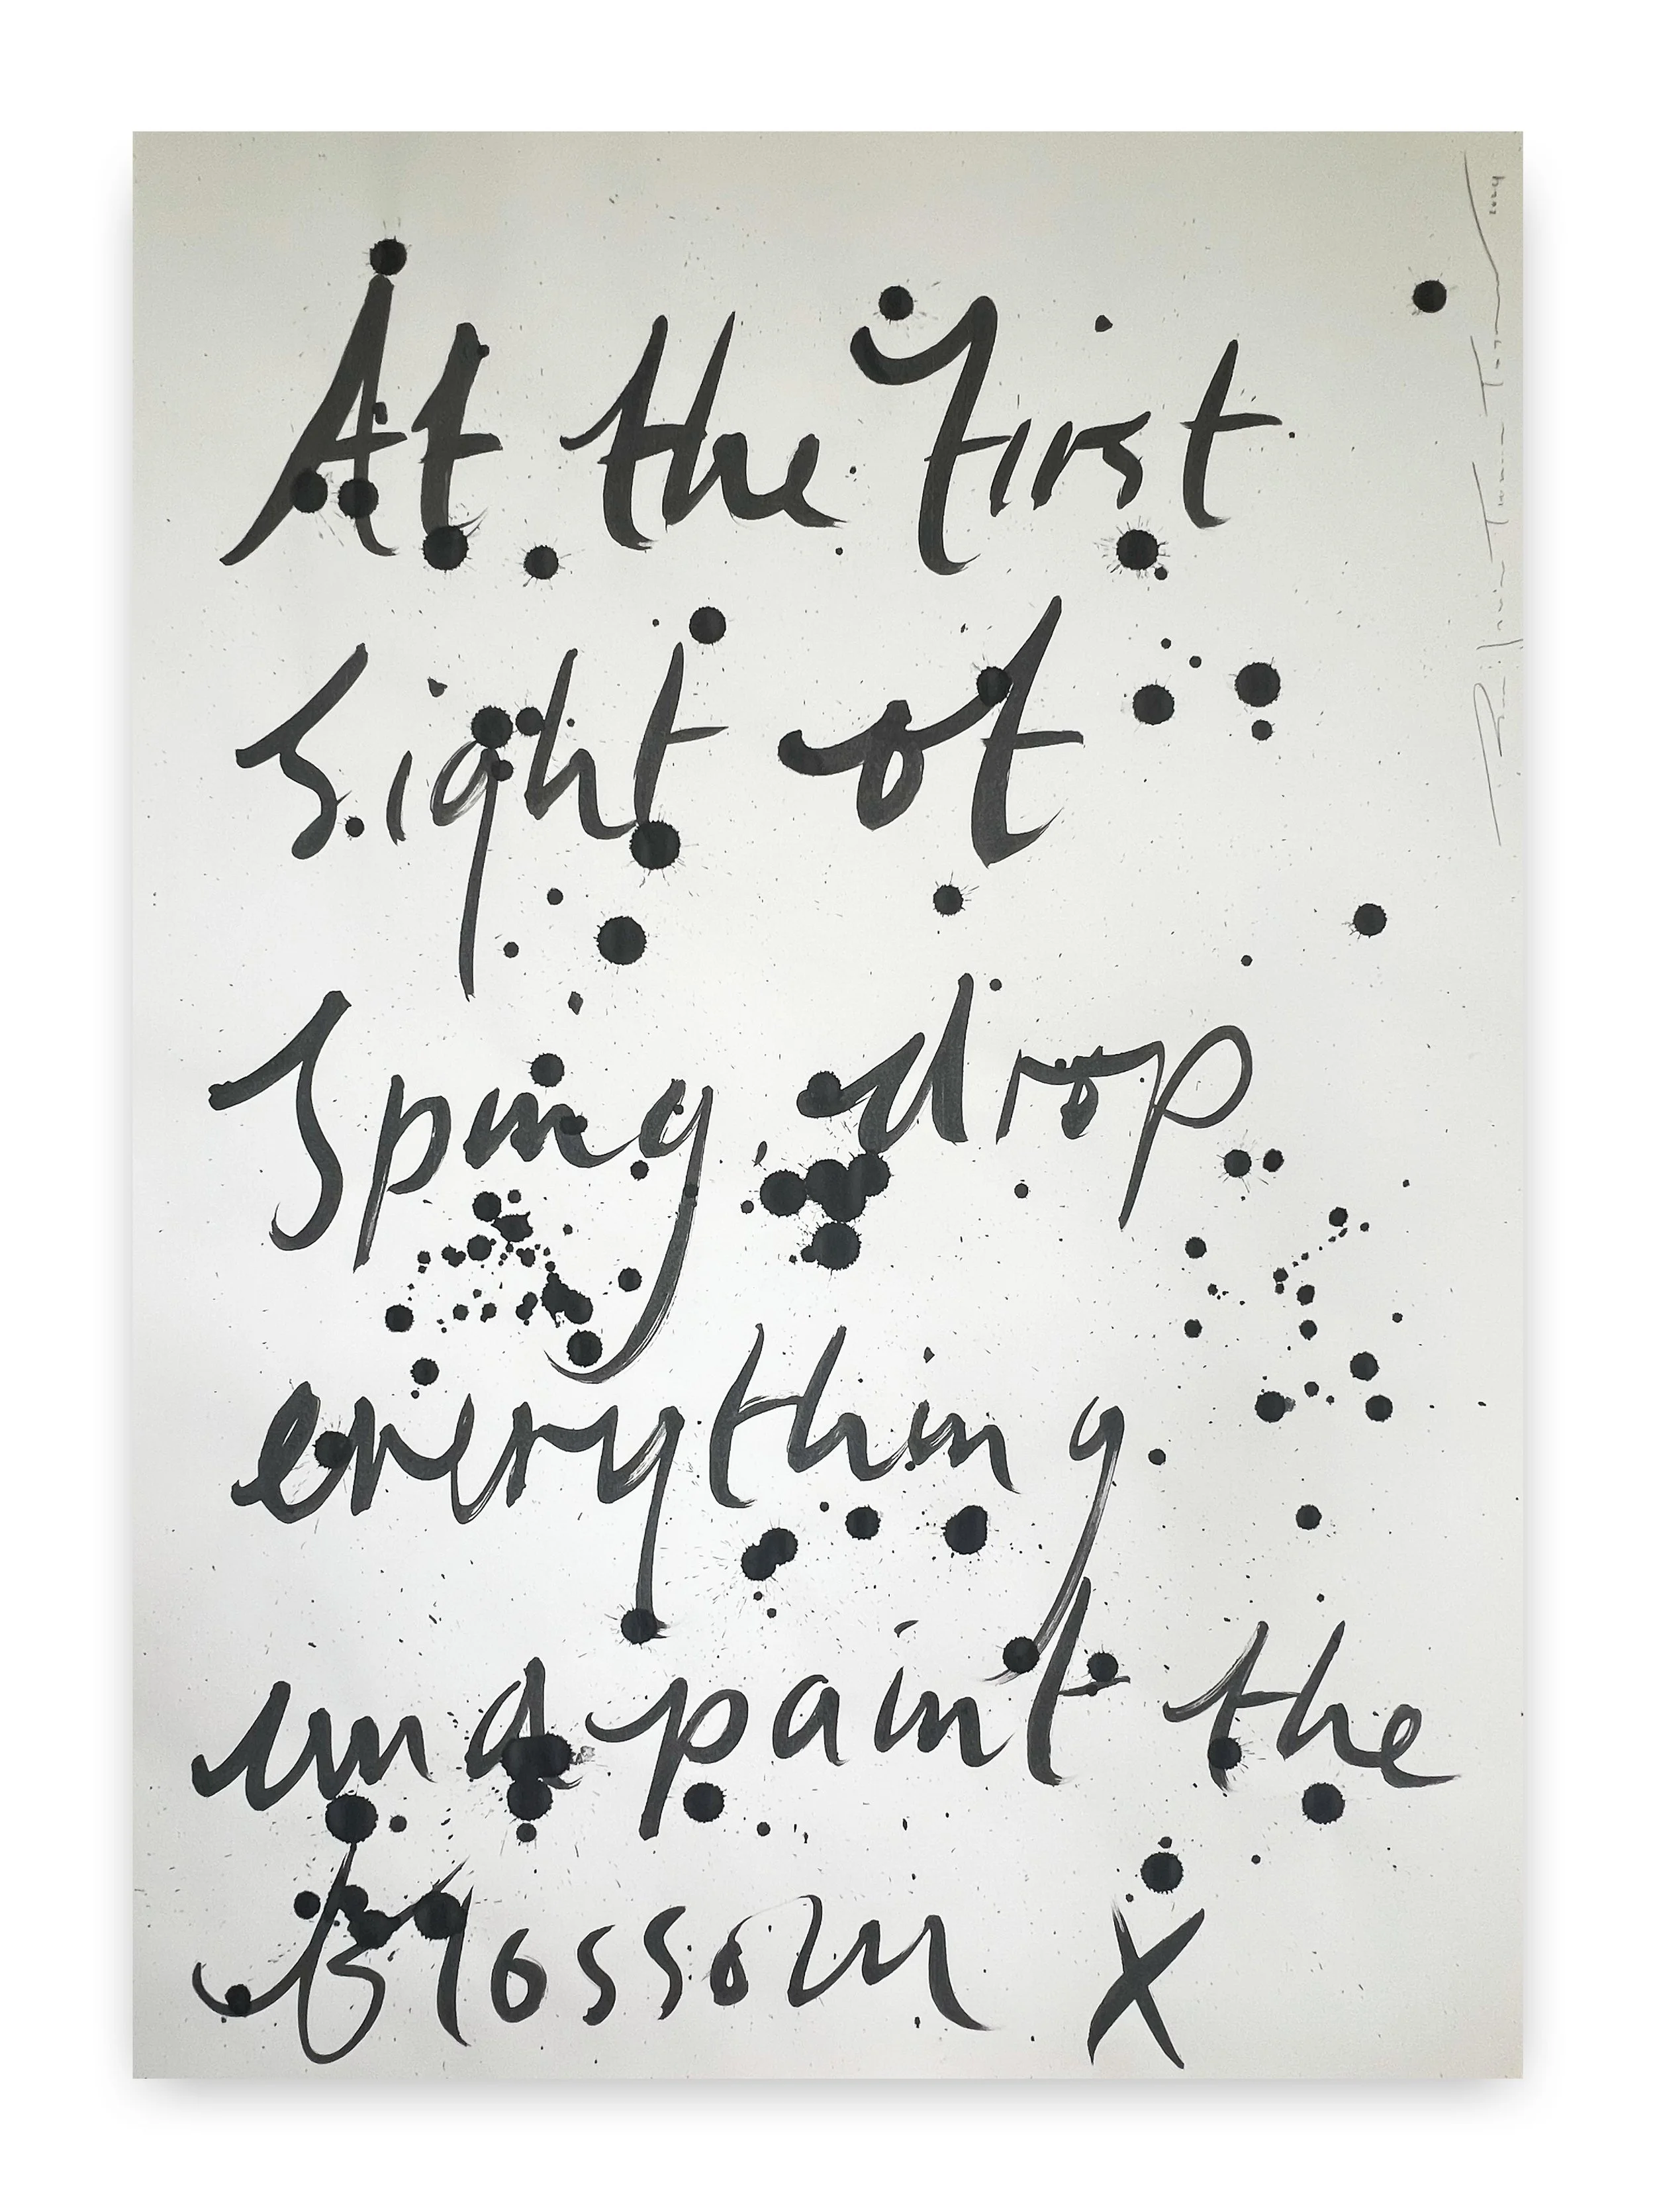 At the first
sight of
Spring, drop
everything
and paint the
blossom x
2024